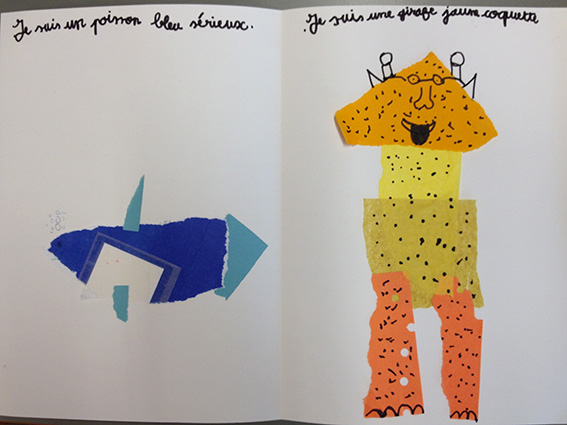 Je suis un poisson bleu sérieux.
.Je suis une girafe jaune coquette